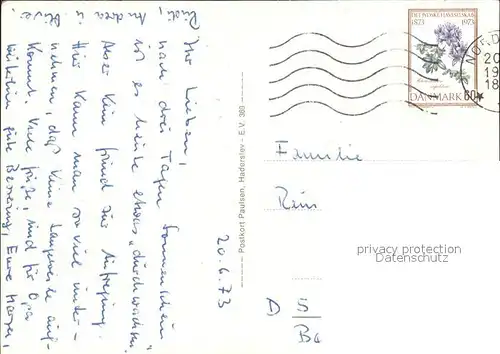 20.6.73
Ihr Lieben,
nach drei Tagen Sonnenschein
ist es heute etwas „durchwachsen".
Aber kein Grund zur Aufregung.
Hier kann man so viel unter-
nehmen, daß keine Langeweile auf-
kommt. Viele Grüße, und für Opa
weiterhin gute Besserung, Eure
Postkort Paulsen, Haderslev - E.V. 360
DET JYDSKE HAVESELSKAB
1873 1973
DANMARK 60
NORD
20
19
18
Familie
Rein
privacy protection
Datenschutz
D